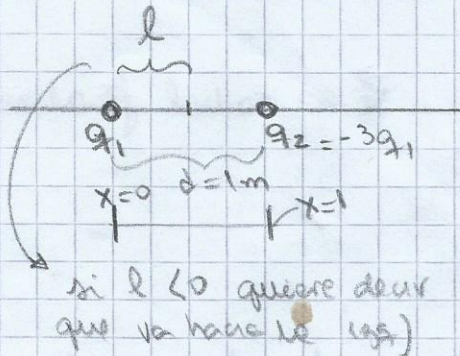 l
q₁ q₂ = -3q₁
x=0 d=1m x=1
si l <0 quiere decir
que va hacia la izq)